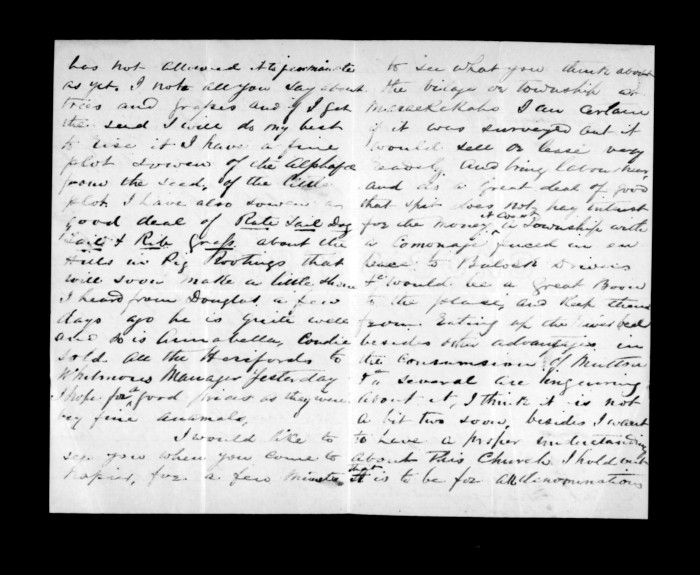 has not allowed it to germinate
as yet. I note all you say about
trees and grapes and if I get
the seed I will do my best
to rise it I have a fine
plot sowen of the Alphafa
from the seed, of the little
plot I have also sowen a
good deal of Rats Tail Dog
Tail & Rib grass about the
Hills in Pig Rootings that
will soon make a little show
I heard from Douglas a few
days ago he is quite well
and so is Annabella, Condie
sold all the Herefords to
Whitmores Manager yesterday
I hope for a good price as they were
very fine anamals,
I would like to
see you when you come to
Napier, for a few minutes
to see what you think about
the village or township at
I am certain
if it was surveyed out it
would sell or lease very
readily and bring labour here
and do a great deal of good
that spir does not pay intrest
for the money it cost, a Township with
a Comonage fenced in on
lease to Bulock Drivers
&c would be a great Boon
to the place, and keep them
from Eating up the river bed
besides other advantages in
the consumsion of Mutton
&c several are enquiring
about it, I think it is not
a bit two soon, besides I want
to have a proper understanding
about this Church I hold out
that it is to be for all denominations